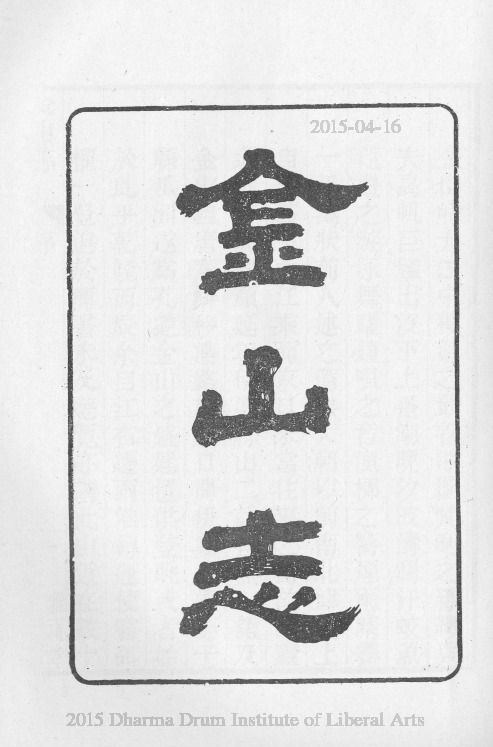 2015-04-16
金山志
2015 Dharma Drum Institute of Liberal Arts